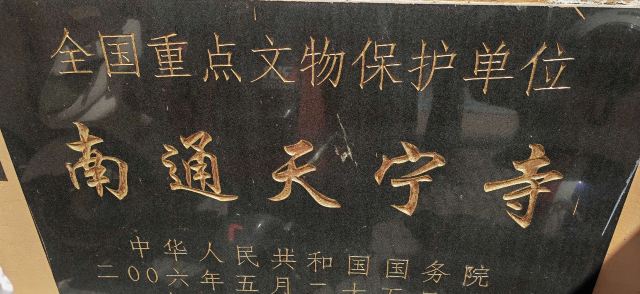 全国重点文物保护单位
南通天宁寺
中华人民共和国国务院
二〇〇六年五月二十五